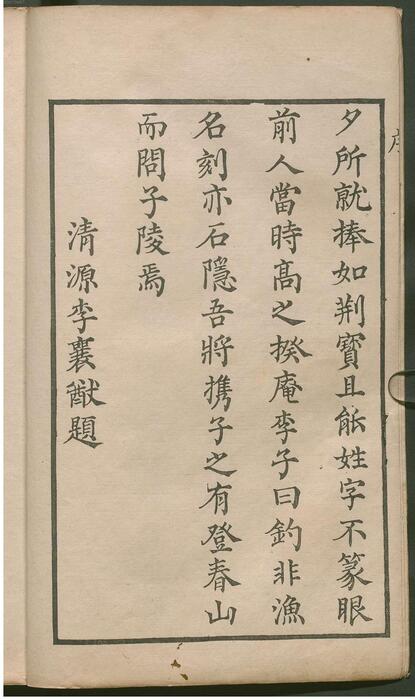 夕所就捧如荆寳且觝姓字不篆眼
前人當時髙之揆庵李子曰釣非漁
名刻亦石隱吾將携子之有登春山
而問子陵焉
清源李襄猷題